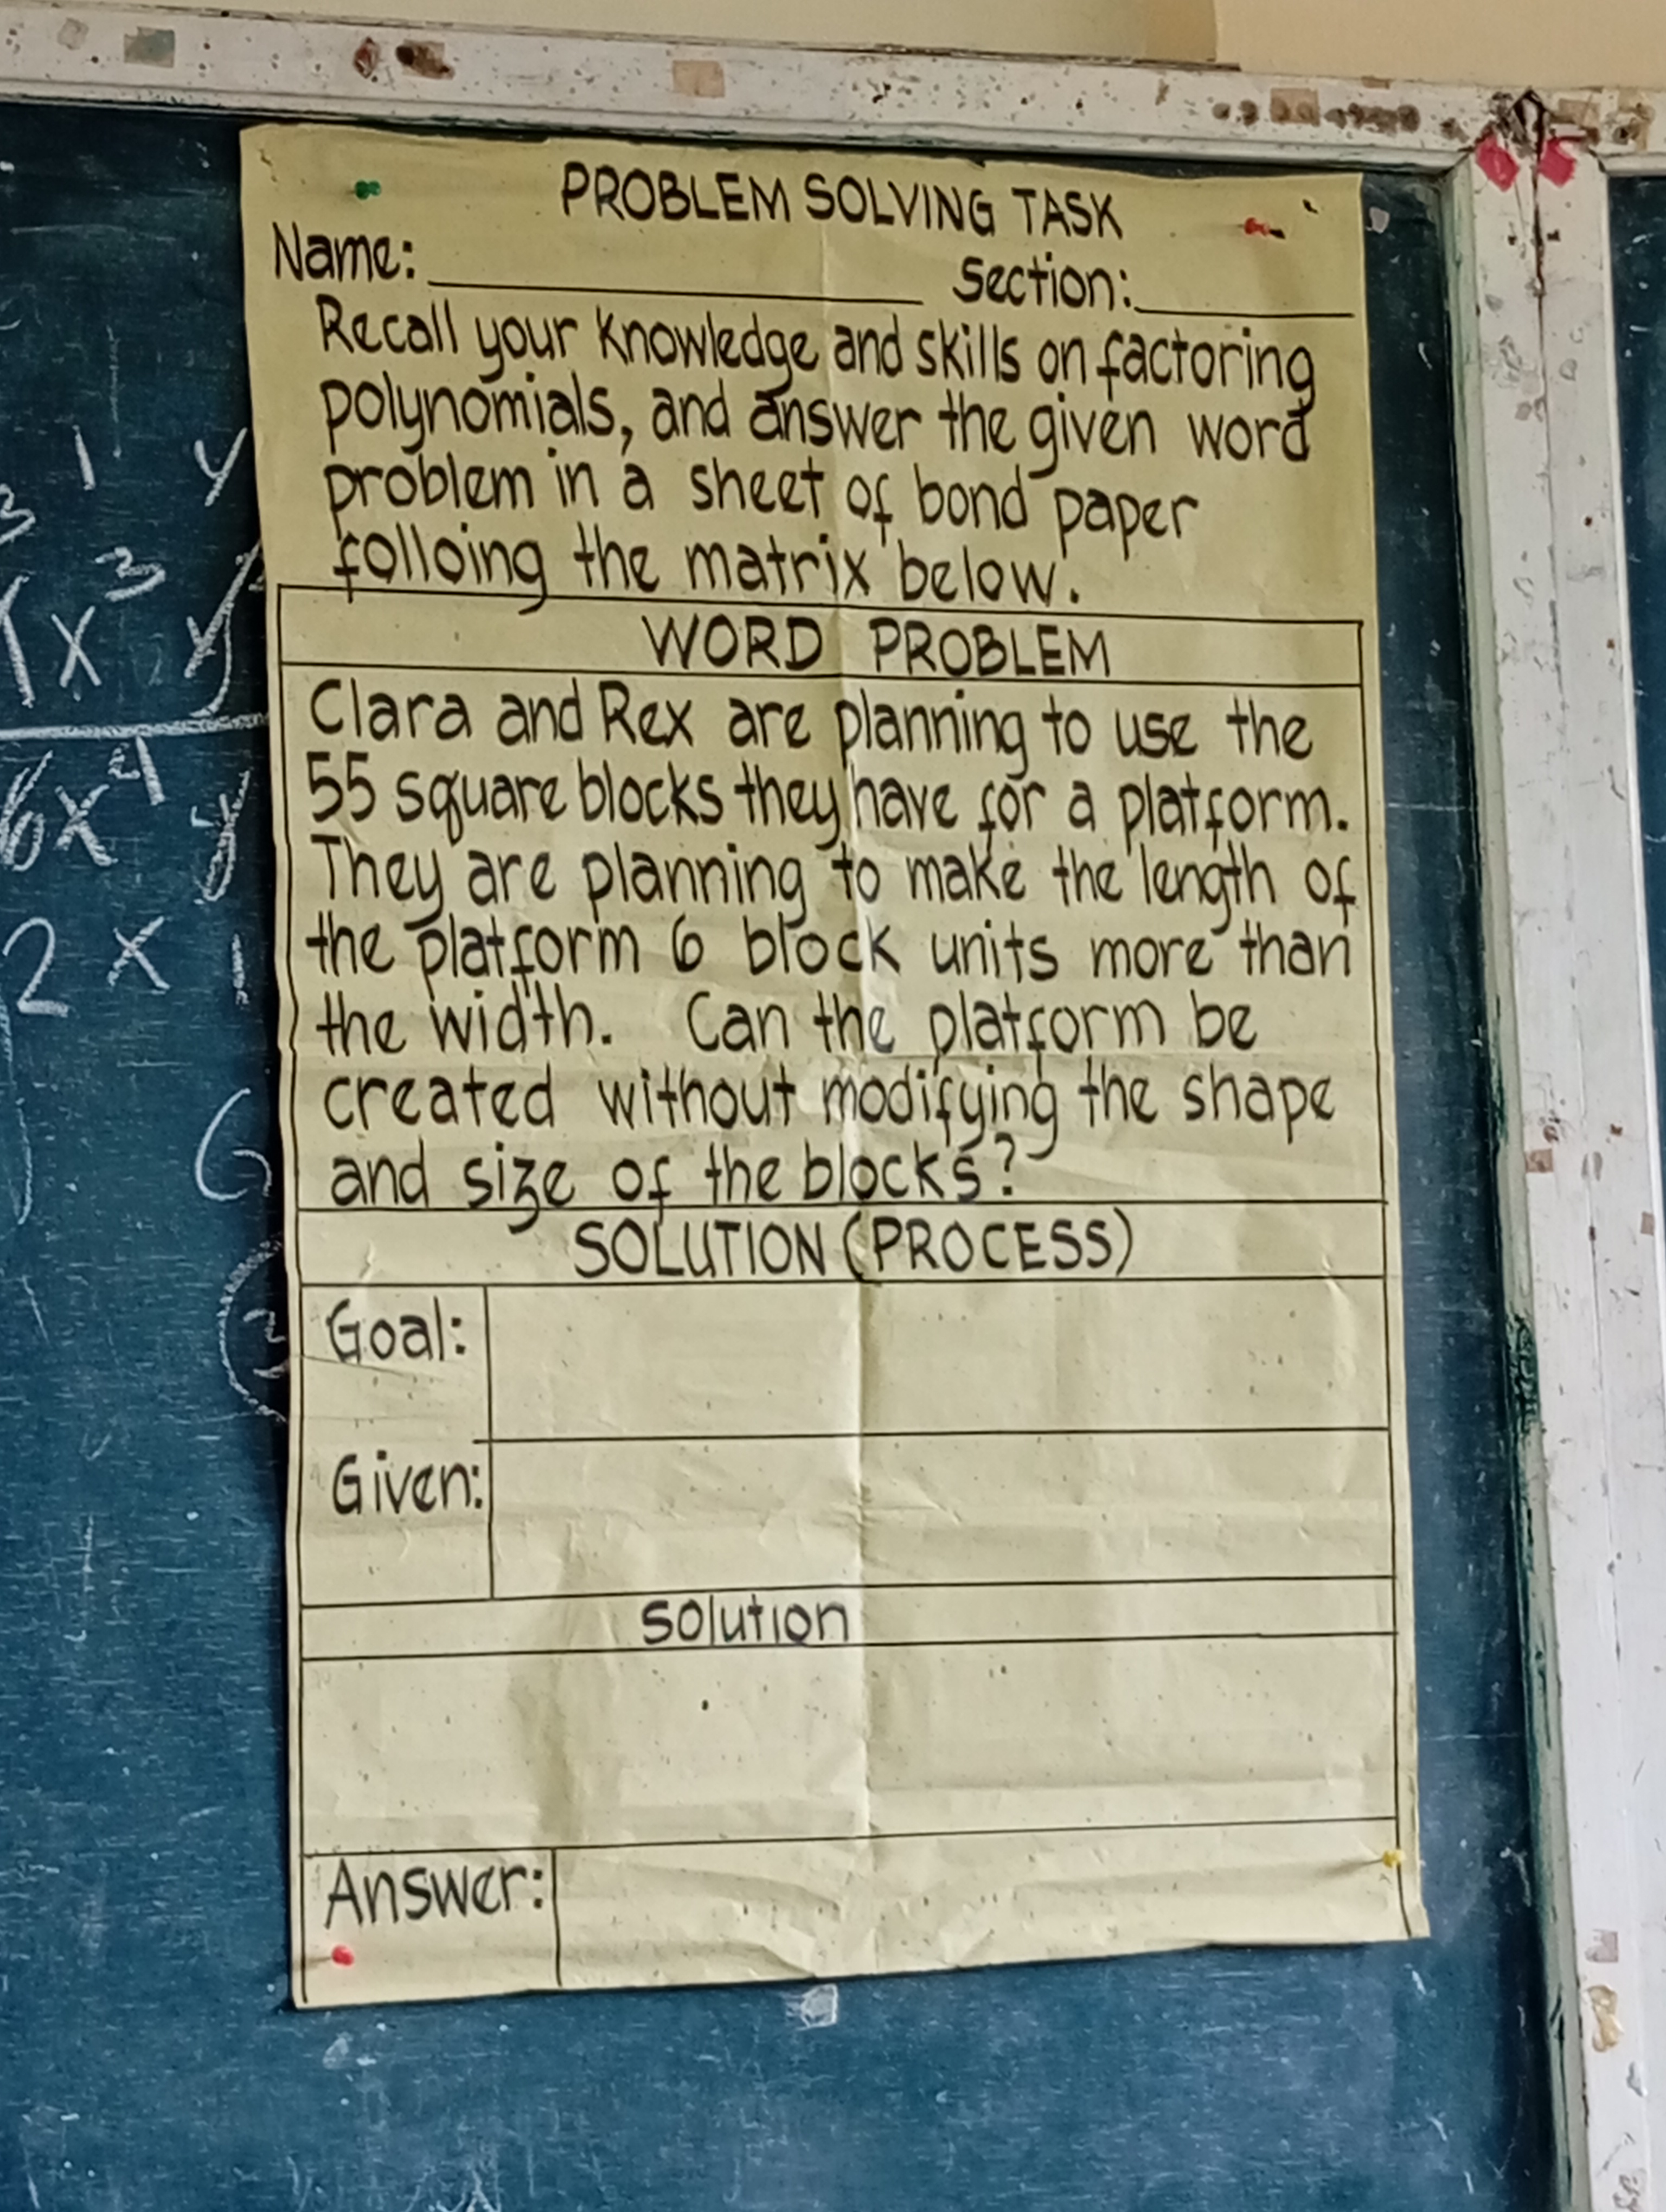 PROBLEM SOLVING TASK
Name: Section:
Recall your knowledge and skills on factoring
polynomials, and answer the given word
problem in a sheet of bond paper
folloing the matrix below.
WORD PROBLEM
Clara and Rex are planning to use the
55 square blocks they have for a platform.
They are planning to make the length of
the platform 6 block units more than
the width. Can the platform be
created without modifying the shape
and size of the blocks?
SOLUTION (PROCESS)
Goal:
Given:
Solution
Answer:
1 y
3
x³ y
6x⁴ y
2 x